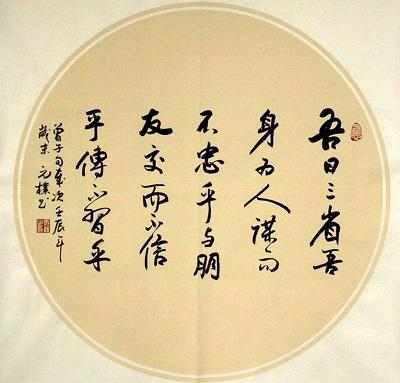 吾日三省吾
身为人谋而
不忠乎与朋
友交而不信
乎传不习乎
曾子句岁次壬辰年
岁末 元朴书